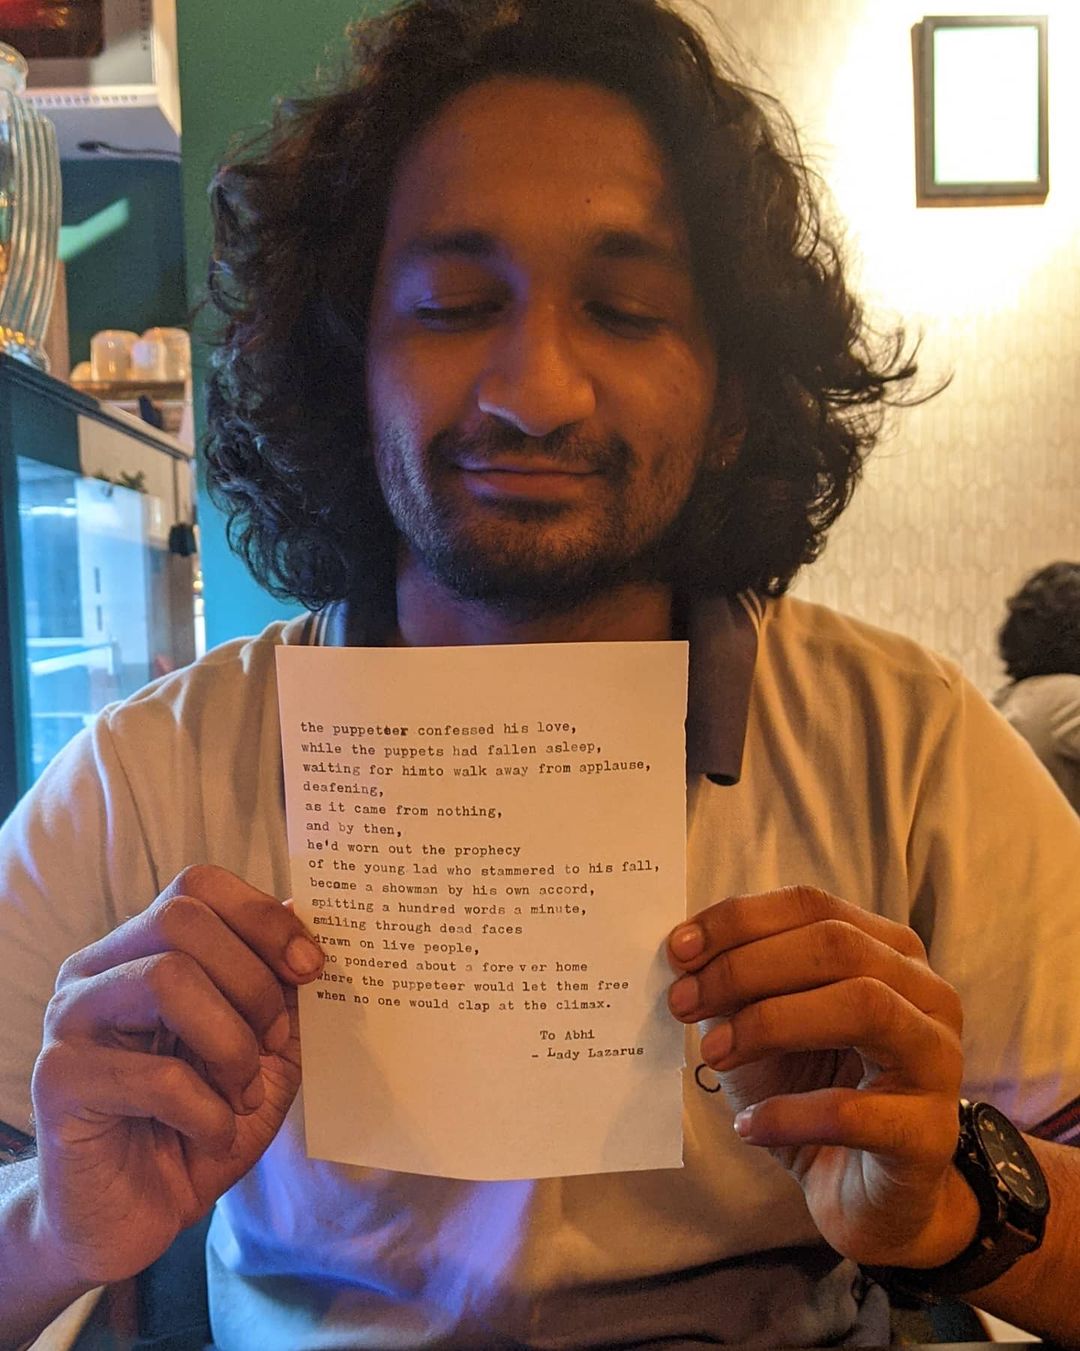 the puppeteer confessed his love,
while the puppets had fallen asleep,
waiting for himto walk away from applause,
deafening,
as it came from nothing,
and by then,
he'd worn out the prophecy
of the young lad who stammered to his fall,
become a showman by his own accord,
spitting a hundred words a minute,
smiling through dead faces
drawn on live people,
who pondered about a fore v er home
where the puppeteer would let them free
when no one would clap at the climax.
To Abhi
- Lady Lazarus